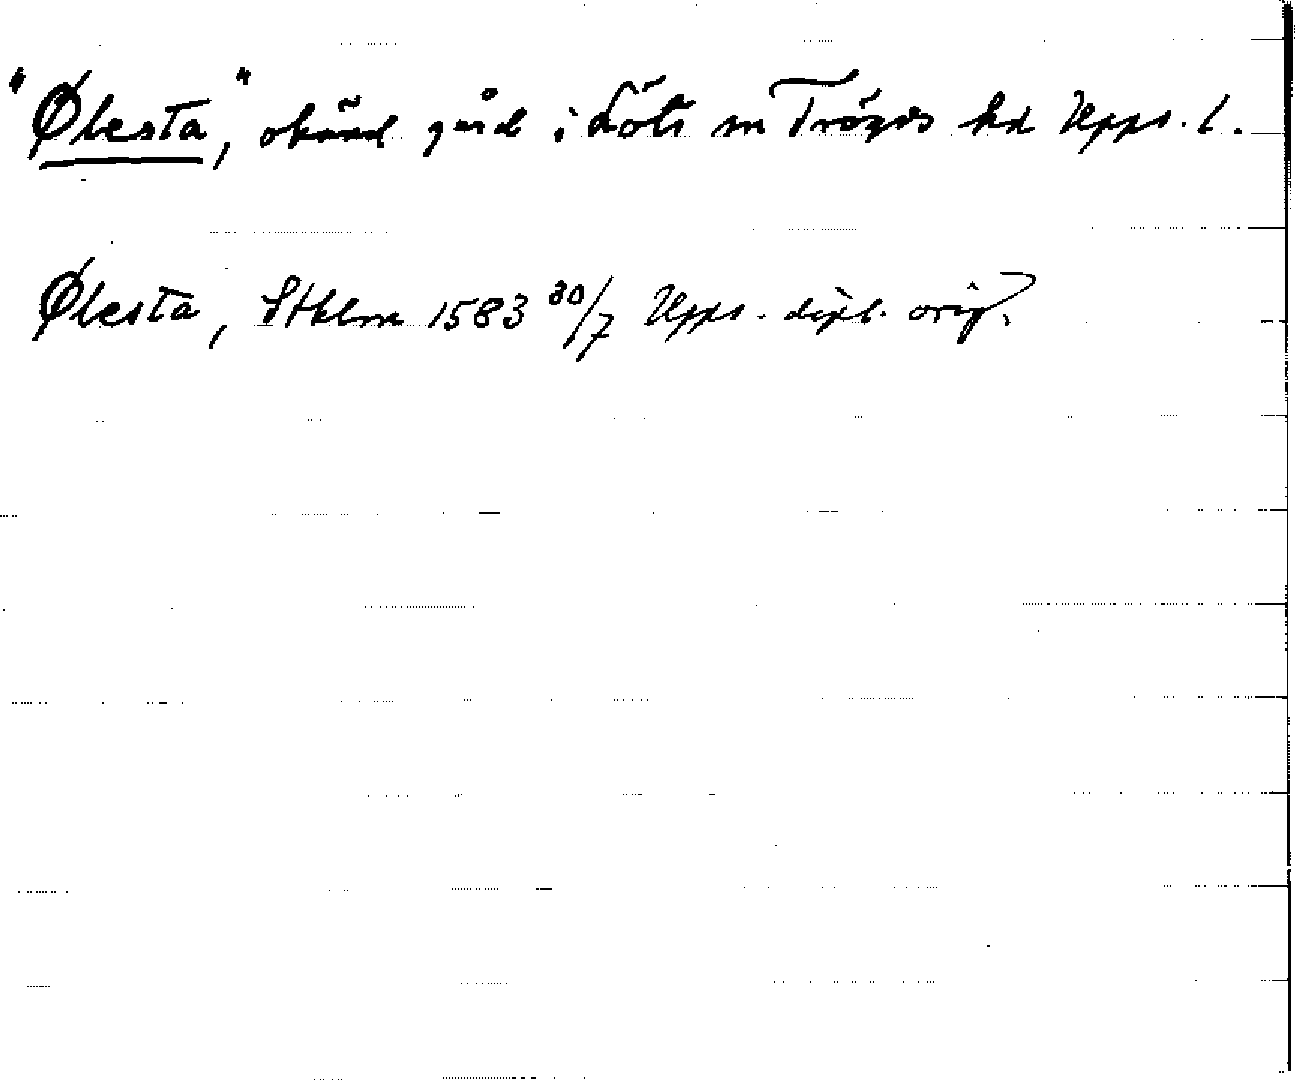 "Ølesta", okänd gård i Löts sn Trögds hd Upps. l.
Ølesta, Sthlm 1583 30/7 Upps. dipl. orig.